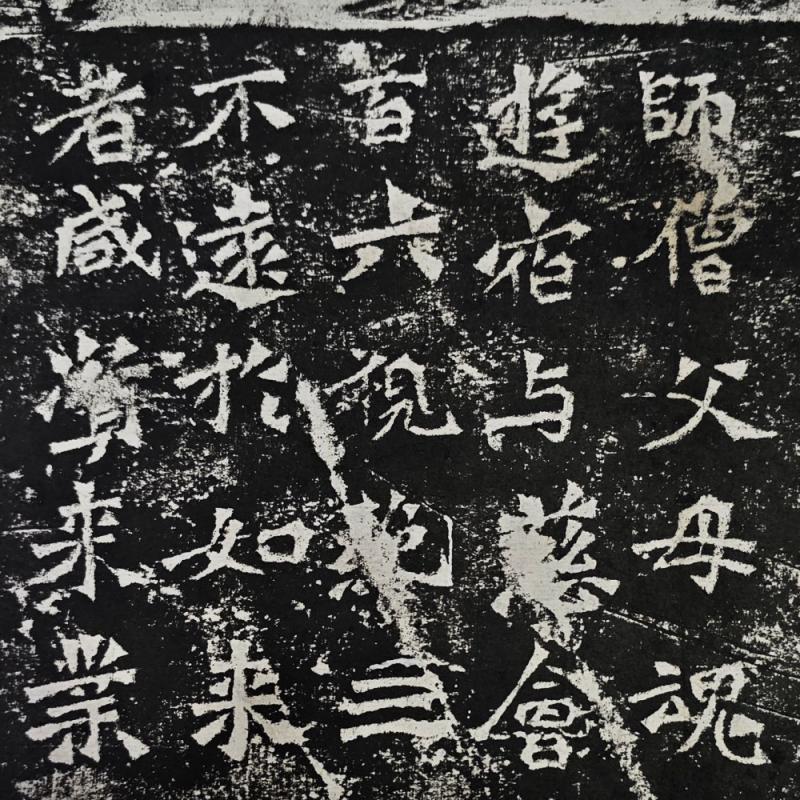 師僧父母魂
遊宿与慈會
首六視絶三
不遠於如来
者咸来業